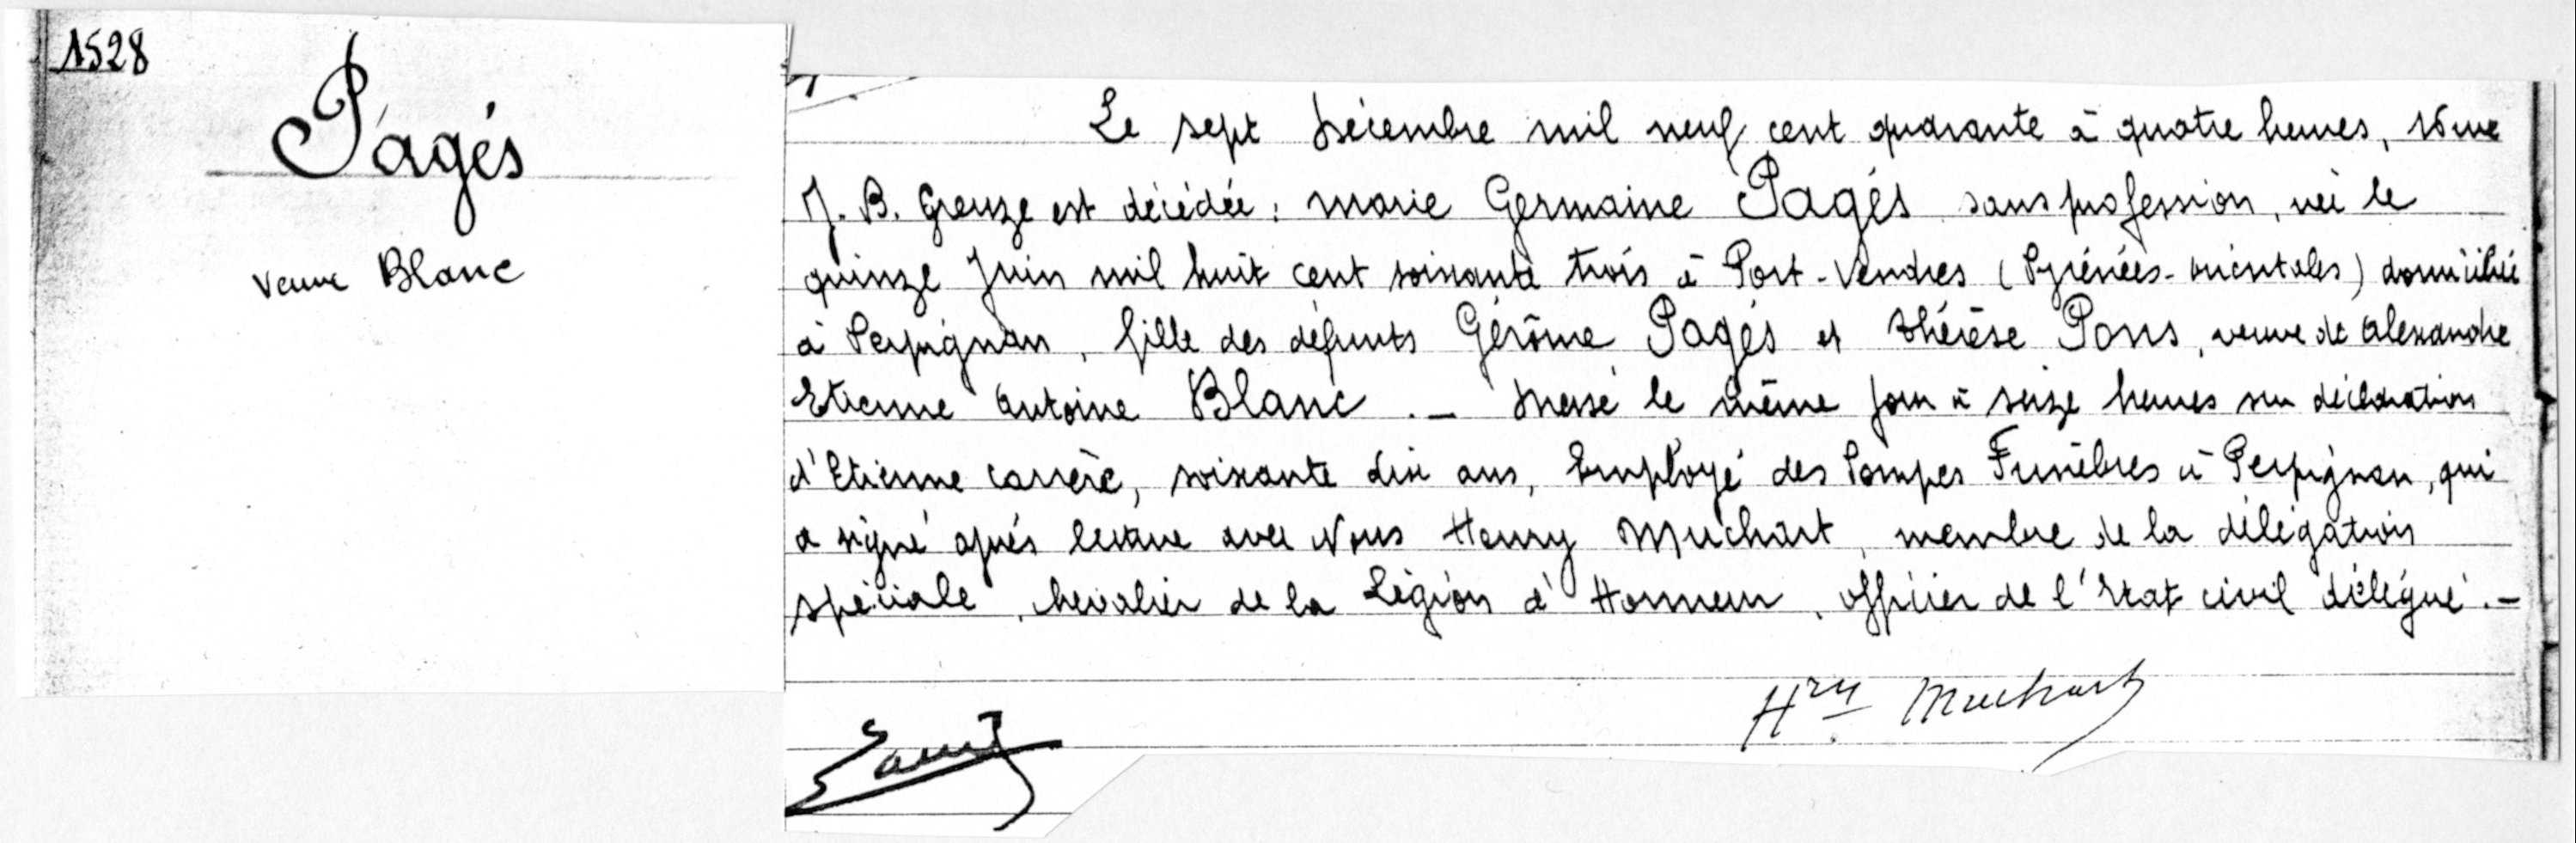 1528
Pagés
veuve Blanc
Le sept Décembre mil neuf cent quarante à quatre heures, 16 rue
J. B. Greuze est décédée : Marie Germaine Pagés sans profession, née le
quinze Juin mil huit cent soixante trois à Port-Vendres (Pyrénées-Orientales) domiciliée
à Perpignan, fille des défunts Gérôme Pagés et Thérèse Pons, veuve de Alexandre
Etienne Antoine Blanc. _ Dressé le même jour à seize heures sur déclaration
d'Etienne Carrère, soixante dix ans, Employé des Pompes Funèbres à Perpignan, qui
a signé après lecture avec Nous Henry Muchart, membre de la délégation
spéciale, chevalier de la Légion d'Honneur, officier de l'Etat civil délégué. _
Hry Muchart